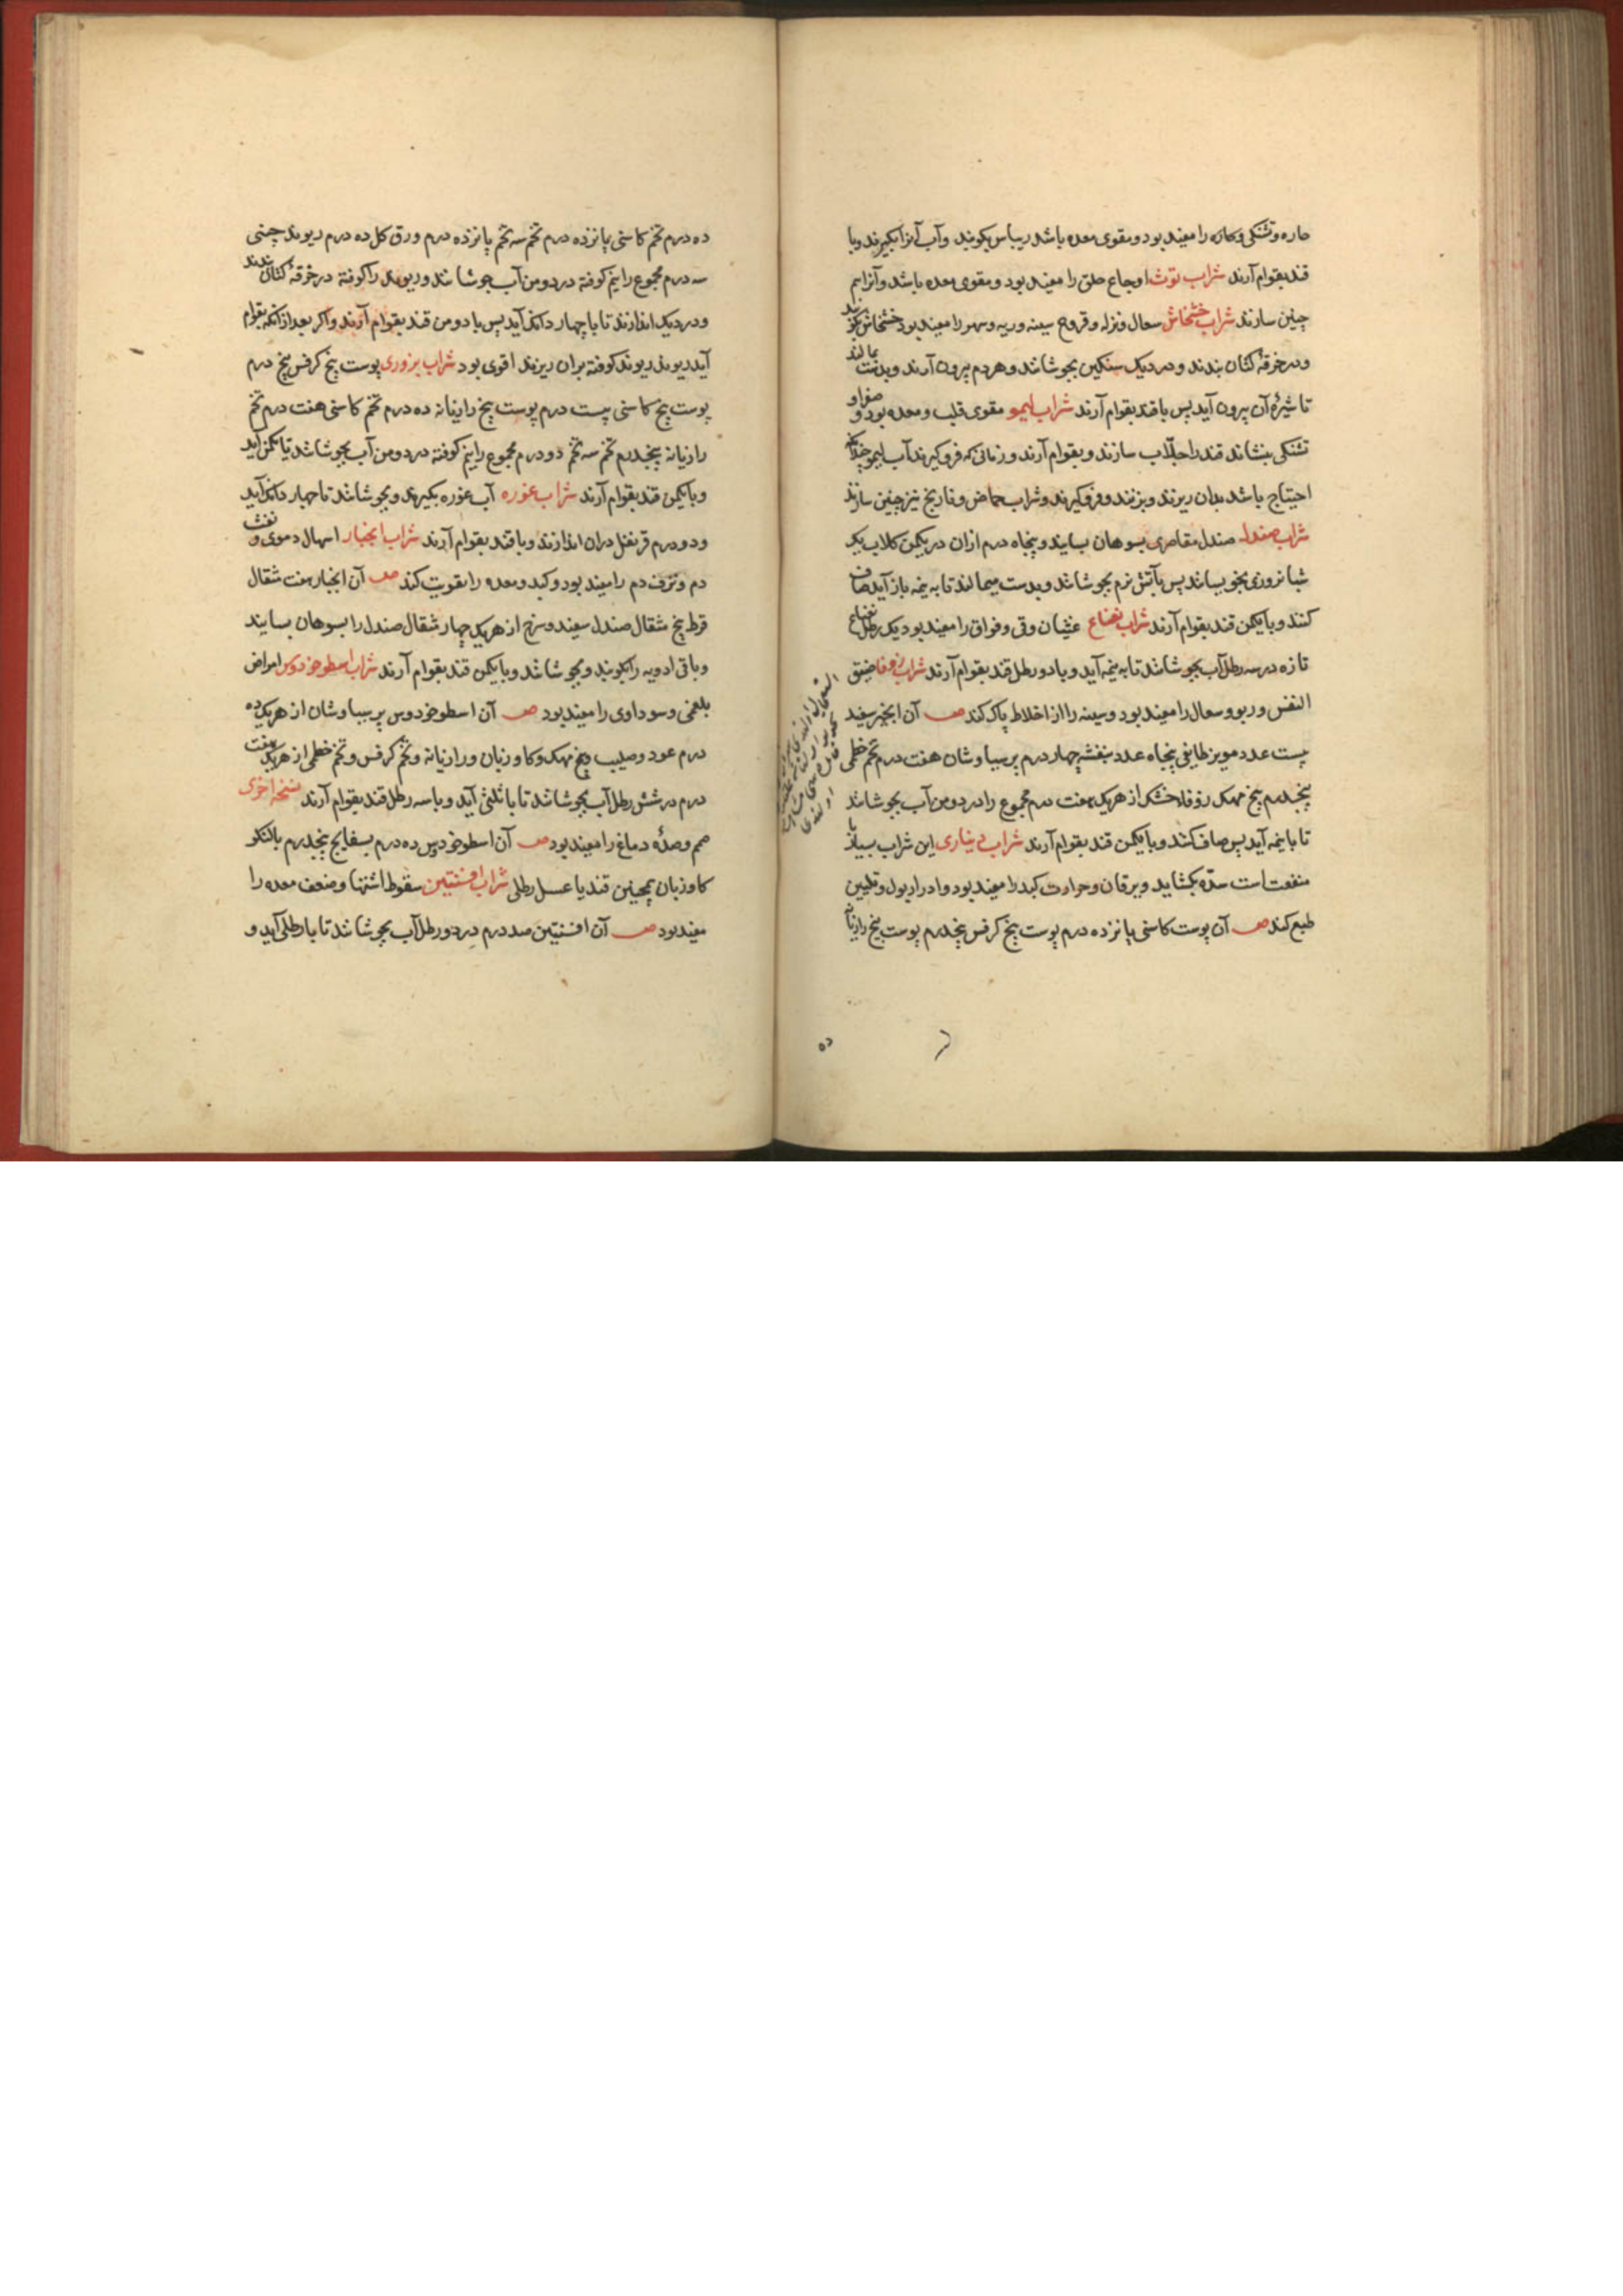 حاره و تشنکی و را مفید بود و مقوی معده باشد ریباس بکوبند و آب آنرا بکیرند و با
قند بقوام آرند شراب توث اوجاع حلق را مفید بود و مقوی معده باشد و آنرا هم
چنین سازند شراب خشخاش سعال و نزله و قروح سینه و ریه و سهر را مفید بود خشخاش
و در خرقهٔ کتان بندند و در دیک سنکین بجوشانند و هر دم بیرون آرند و بدست بمالند
تا شیرهٔ آن بیرون آید پس با قند بقوام آرند شراب لیمو مقوی قلب و معده بود و صفرا و
تشنکی بنشاند قند را جلّاب سازند و بقوام آرند و زمانی که فرو کیرند آب لیمو چندانکه
احتیاج باشد بدان ریزند و بزنند و فرو کیرند و شراب حماض و نارنج نیز چنین سازند
شراب صندل صندل مقاصری بسوهان بسایند و پنجاه درم ازان در یکمن کلاب
شبانروزی بخویسانند پس بآتش نرم بجوشانند و بدست میمالند تا به نیمه باز آید صاف
کنند و با یکمن قند بقوام آرند شراب نعناع غثیان و قی و فواق را مفید بود یک رطل نعناع
تازه در سه رطل آب بجوشانند تا به نیمه آید و با دو رطل قند بقوام آرند شراب زوفا ضیق
النفس و ربو و سعال را مفید بود و سینه را از اخلاط پاک کند صـ آن انجیر سفید
بیست عدد مویز طایفی پنجاه عدد بنفشه چهار درم پرسیاوشان هفت درم تخم خطمی
پنجدرم بیخ مهک زوفاء خشک از هریک هفت درم مجموع را در دو من آب بجوشانند
تا با نیمه آید پس صاف کنند و با یکمن قند بقوام آرند شراب دیناری این شراب بسیار با
منفعت است سدّه بکشاید و یرقان و حرارت کبد را مفید بود و ادرار بول و تلیین
طبع کند صـ آن پوست کاسنی پانزده درم پوست بیخ کرفس پنجدرم پوست بیخ رازیانه
ده
ده درم تخم کاسنی پانزده درم تخم سه تخم پانزده درم ورق کل ده درم ریوند چینی
سه درم مجموع را نیم کوفته در دو من آب جوشانند و ریوند را کوفته در خرقهٔ کتان بندند
و در دیک اندازند تا با چهار دانک آید پس با دو من قند بقوام آرند و اکر بعد ازانکه بقوام
آید ریوند کوفته بران ریزند اقوی بود شراب بزوری پوست بیخ کرفس پنج درم
پوست بیخ کاسنی بیست درم پوست بیخ رازیانه ده درم تخم کاسنی هفت درم تخم
رازیانه پنجدرم تخم سه تخم دو درم مجموع را نیم کوفته در دو من آب بجوشانند تا یکمن آید
و با یکمن قند بقوام آرند شراب غوره آب غوره بکیرند و بجوشانند تا چهار دانک آید
و دو درم قرنفل دران اندازند و با قند بقوام آرند شراب انجبار اسهال دموی و نفث
دم و نزف دم را مفید بود و کبد و معده را تقویت کند صـ آن انجبار هفت مثقال
قرط پنج مثقال صندل سفید و سرخ از هریک چهار مثقال صندل را بسوهان بسایند
و باقی ادویه را بکوبند و بجوشانند و با یکمن قند بقوام آرند شراب اسطوخودوس امراض
بلغمی و سوداوی را مفید بود صـ آن اسطوخودوس پرسیاوشان از هریک ده
درم عود و صلیب و بیخ مهک و کاوزبان و رازیانه و تخم کرفس و تخم خطمی از هریک هفت
درم در شش رطل آب بجوشانند تا با ثلثی آید و با سه رطل قند بقوام آرند نسخه اخری
دماغ را مفید بود صـ آن اسطوخودوس ده درم بسفایج پنجدرم بالنکو
کاوزبان همچنین قند یا عسل رطلی شراب افسنتین سقوط اشتها و ضعف معده را
مفید بود صـ آن افسنتین صد درم در دو رطل آب بجوشانند تا با رطلی آید و